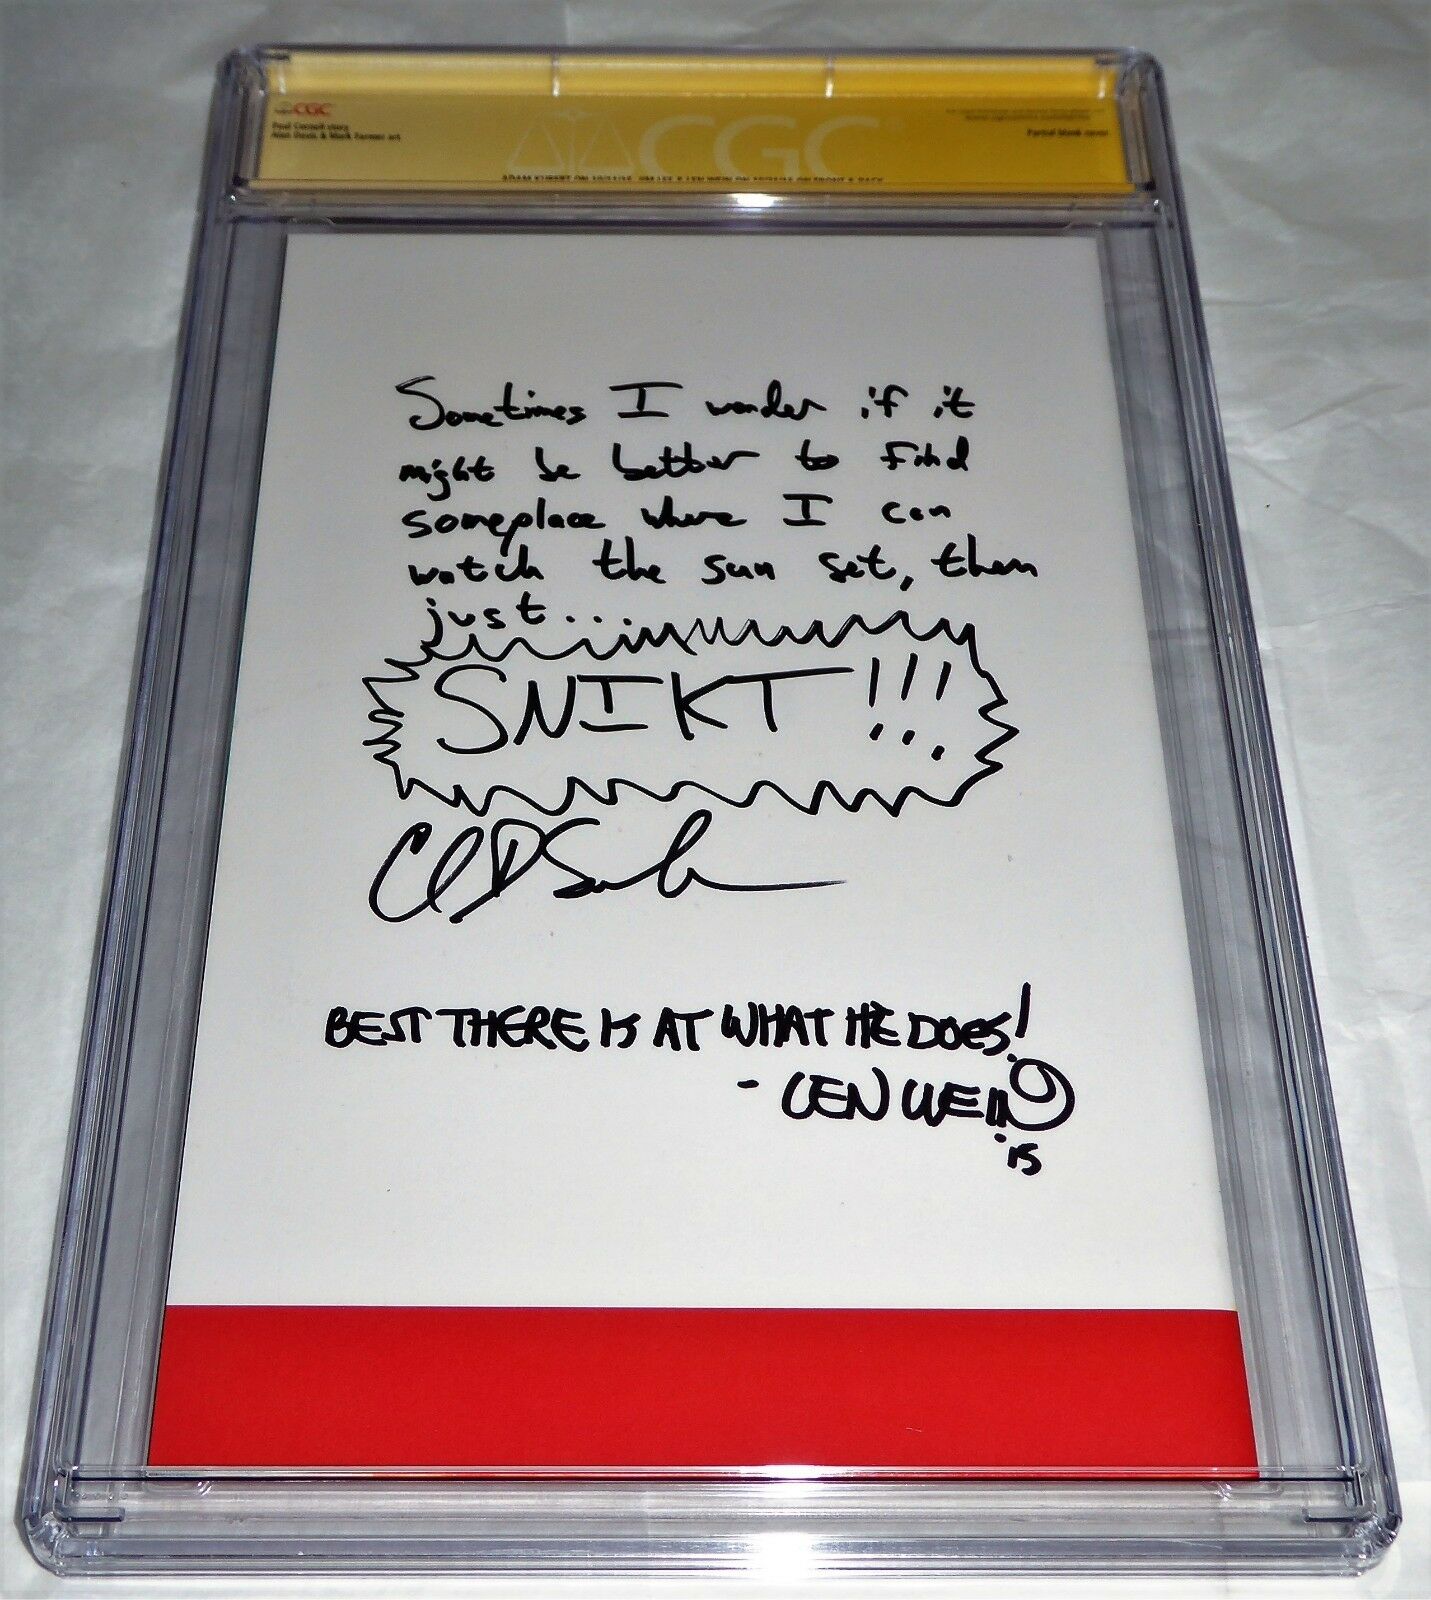 CGC
Paul Cornell story
Alan Davis & Mark Farmer art
CGC
Partial blank cover
Sometimes I wonder if it
might be better to find
someplace where I can
watch the sun set, then
just...
SNIKT!!!
BEST THERE IS AT WHAT HE DOES!
- LEN WEIN
'15